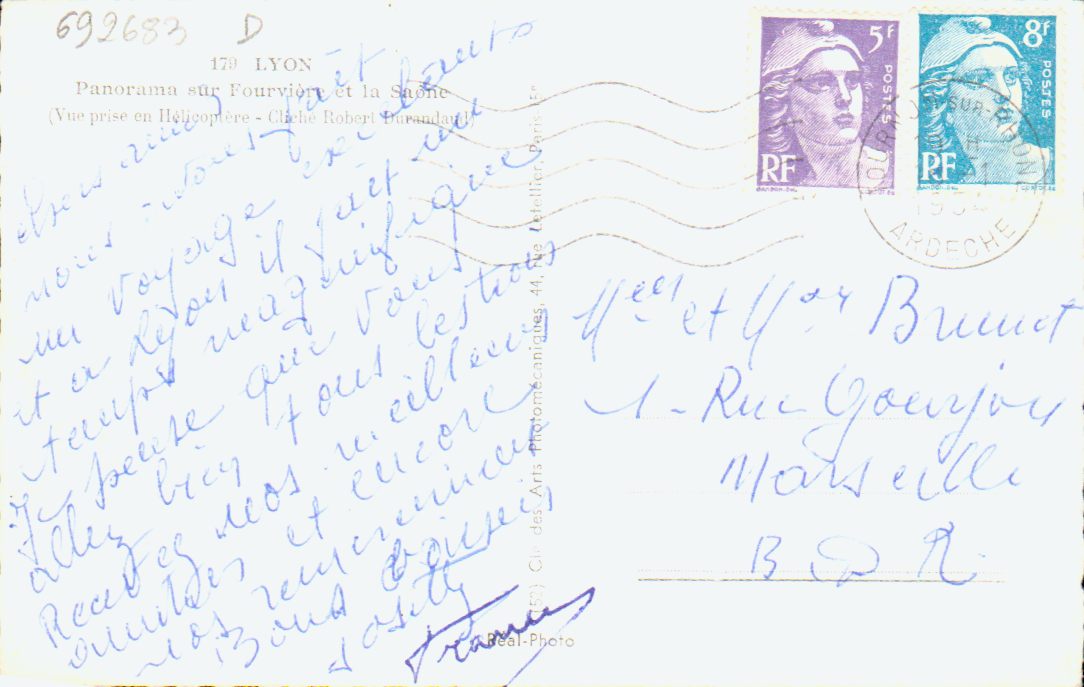 692683 D
179 LYON
Panorama sur Fourvière et la Saône
(Vue prise en Hélicoptère - Cliché Robert Durandaud)
chers amis
nous avons fait
un voyage excellents
et a Lyon il fait un
temps magnifique
Je pense que vous
allez bien tous les trois
Recevez nos meilleurs
amitiés et encore
nos remerciments
Bons baisers
Josette
Francis
(152) Cie des Arts Photomécaniques, 44, rue Letellier, Paris-15e
Réal-Photo
5f
POSTES
RF
GANDON-DEL
8f
POSTES
RF
GANDON-DEL
CORTOT-SC
TOURNON-SUR-RHONE
ARDECHE
et
Brunet
1 - Rue Goujon
Marseille
B D R